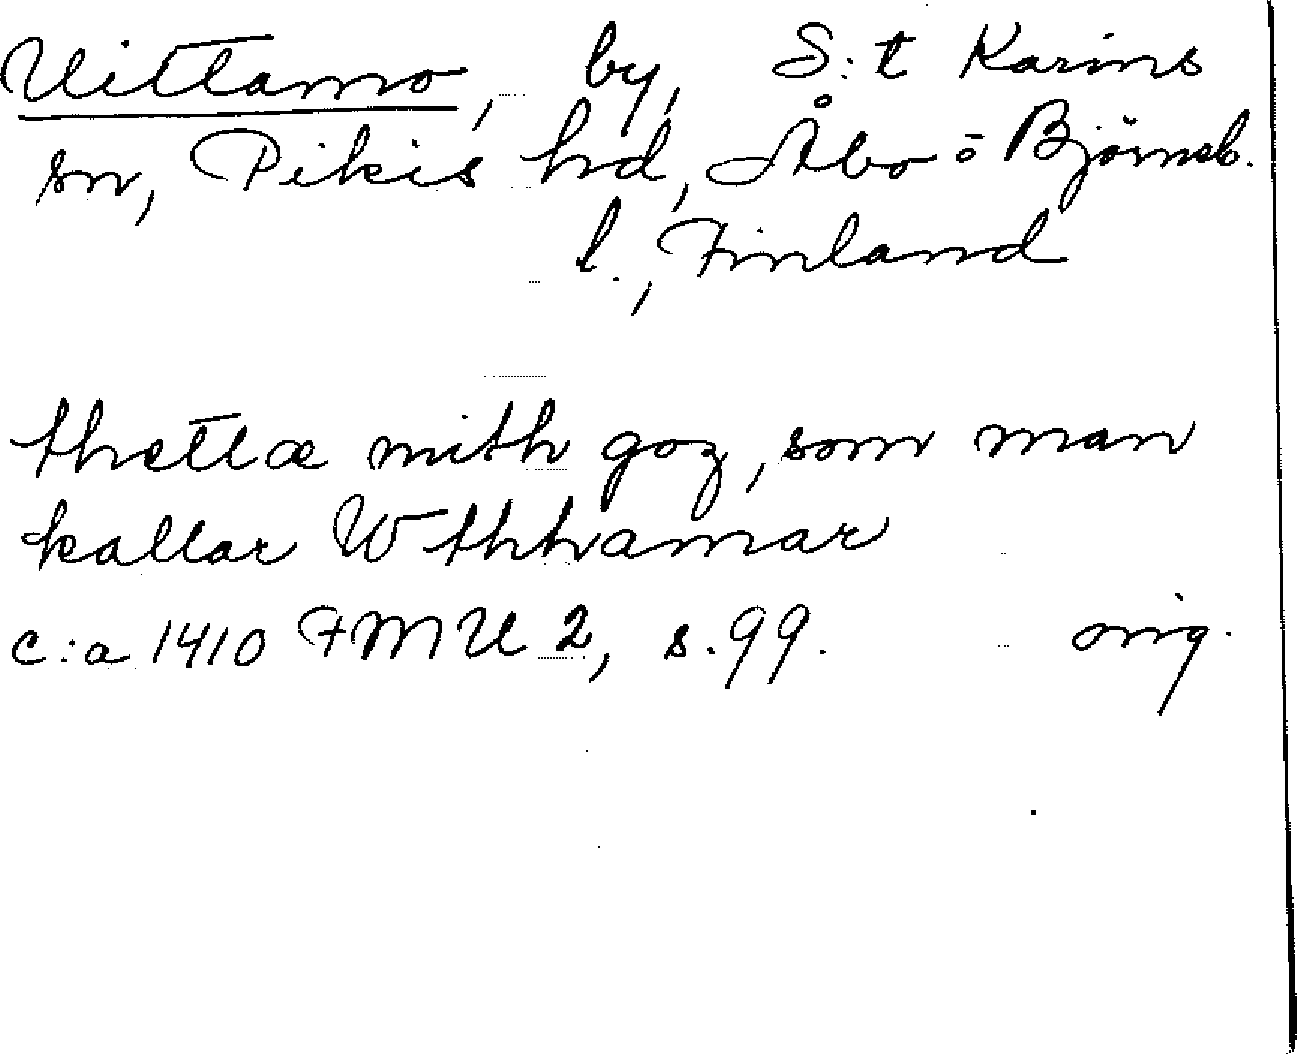 Uittamo, by, S:t Karins
sn, Pikis hd, Åbo o Björneb.
l., Finland
thettæ mith goz, som man
kallar Wthhamar
c:a 1410 FMU 2, s. 99. orig.